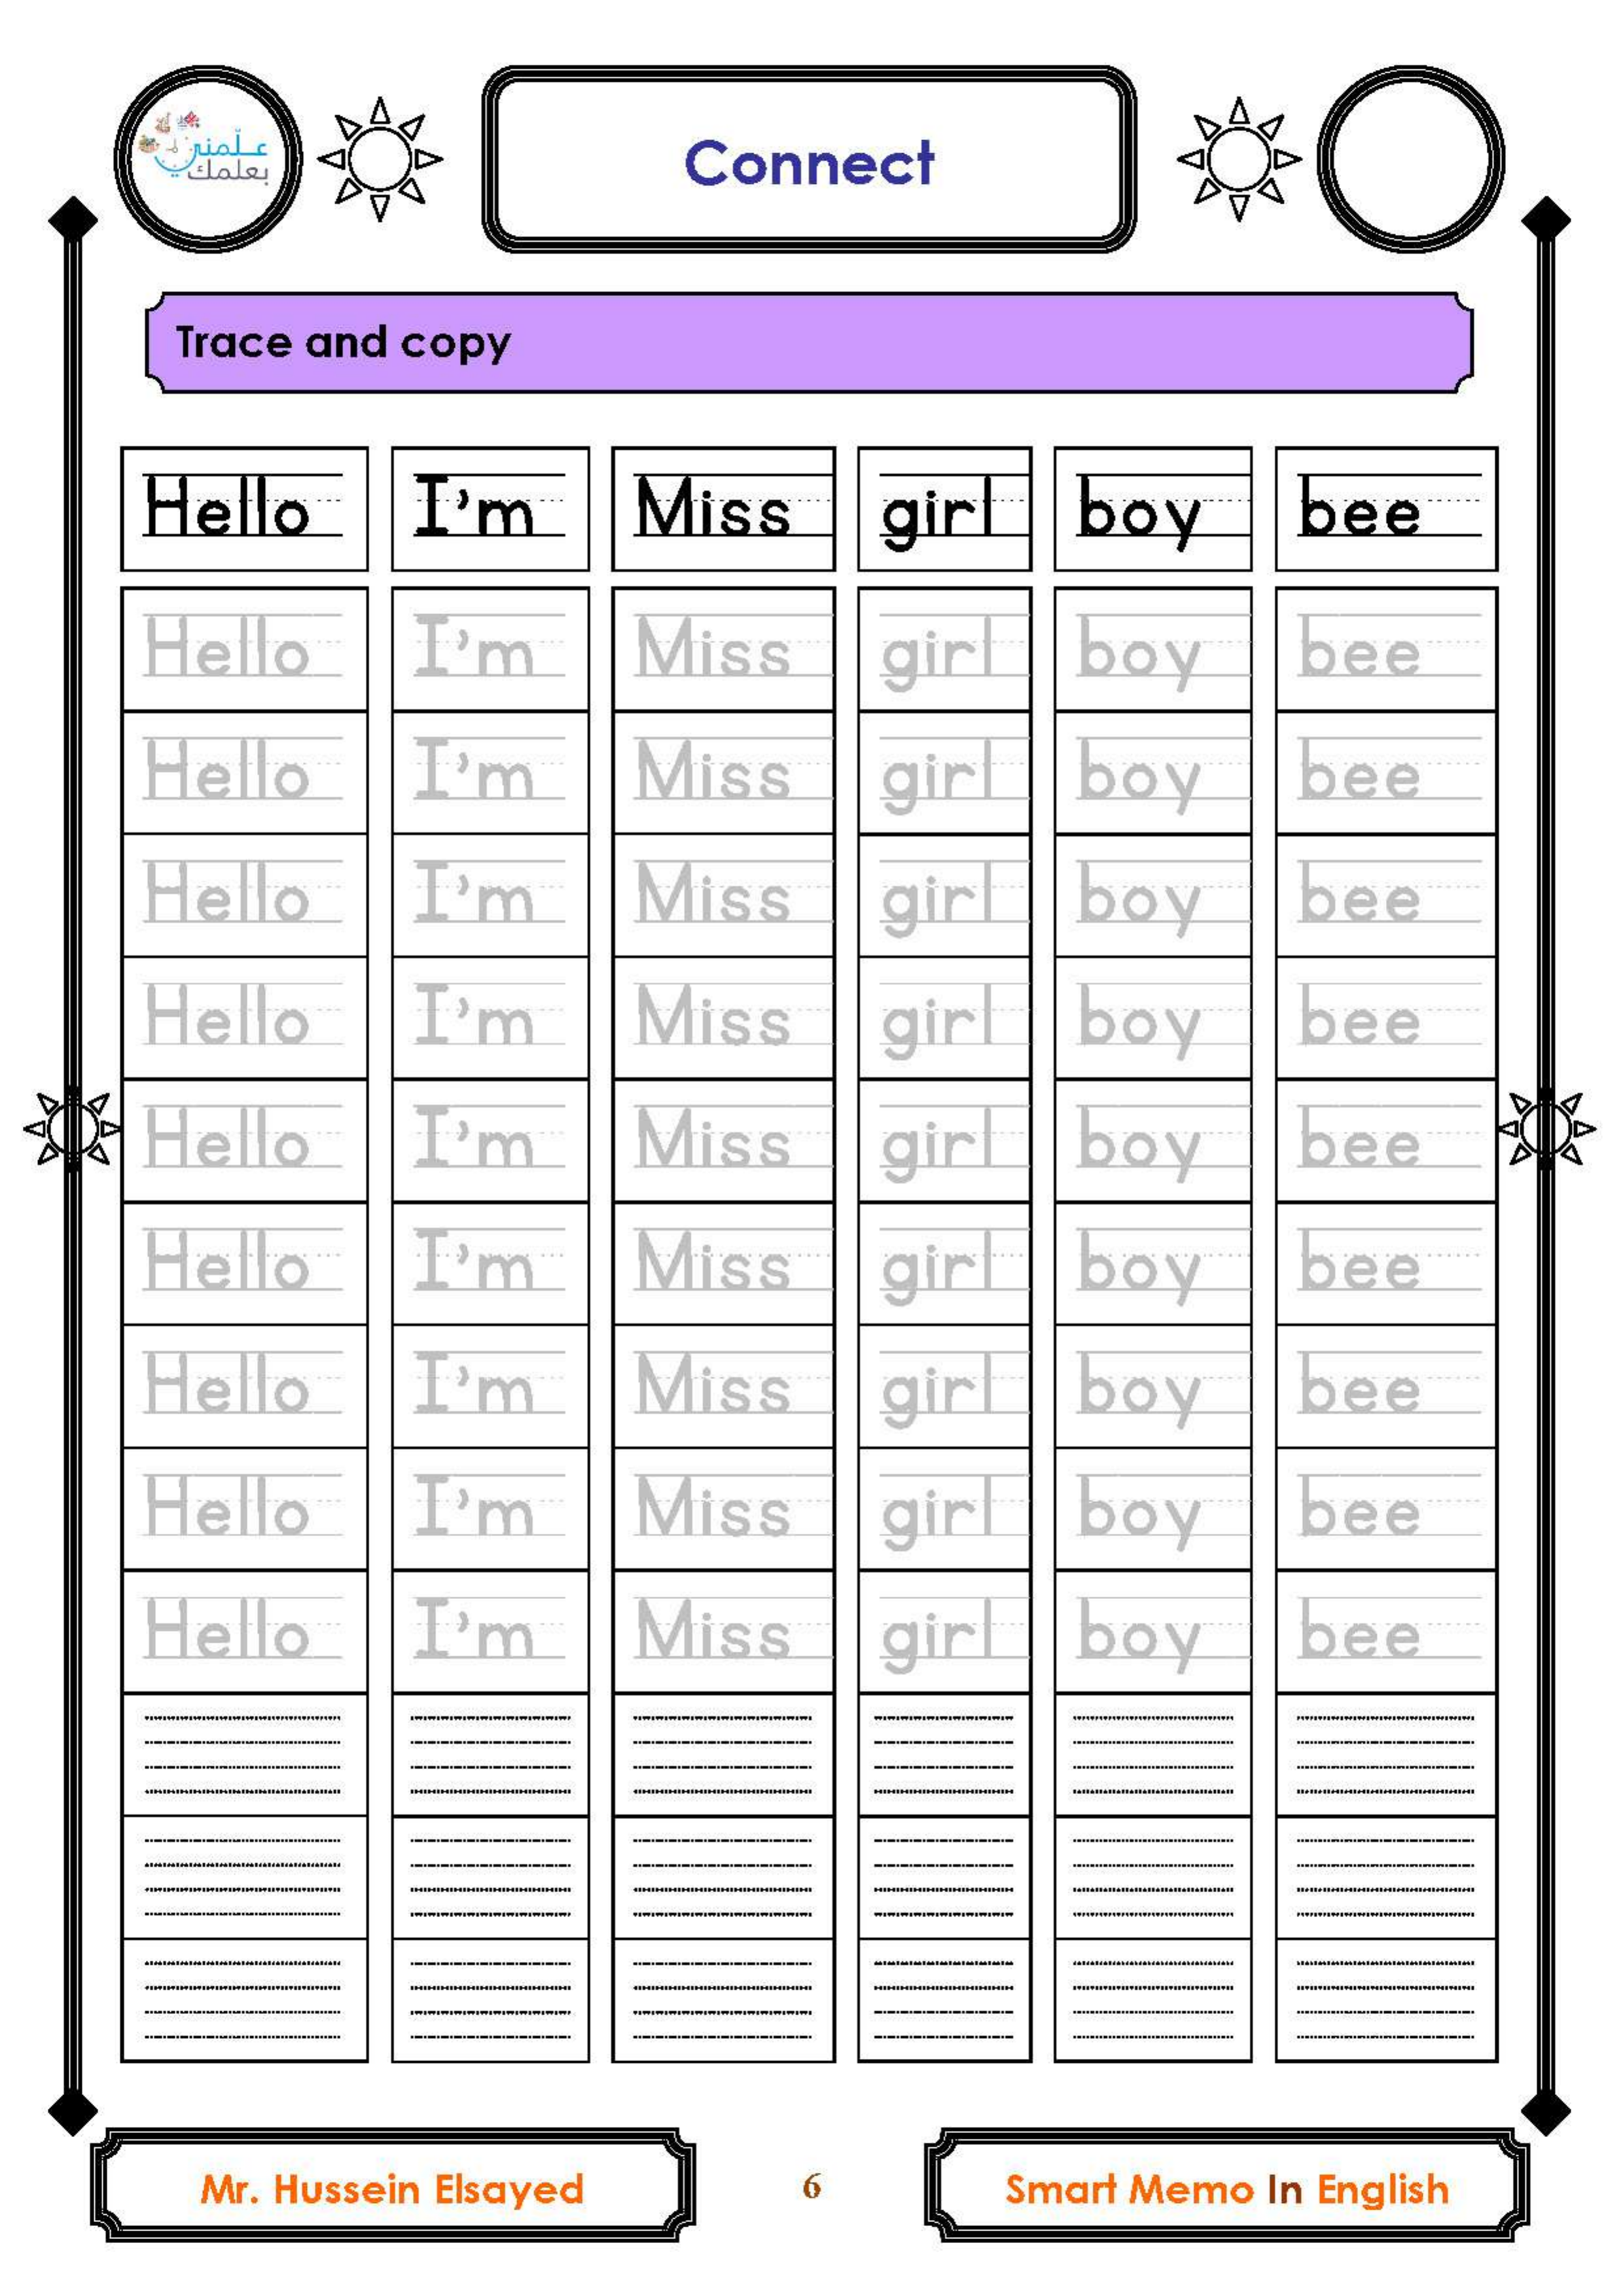 علّمني
بعلمك
Connect
Trace and copy
Hello I'm Miss girl boy bee
Hello I'm Miss girl boy bee
Hello I'm Miss girl boy bee
Hello I'm Miss girl boy bee
Hello I'm Miss girl boy bee
Hello I'm Miss girl boy bee
Hello I'm Miss girl boy bee
Hello I'm Miss girl boy bee
Hello I'm Miss girl boy bee
Hello I'm Miss girl boy bee
Mr. Hussein Elsayed 6 Smart Memo In English